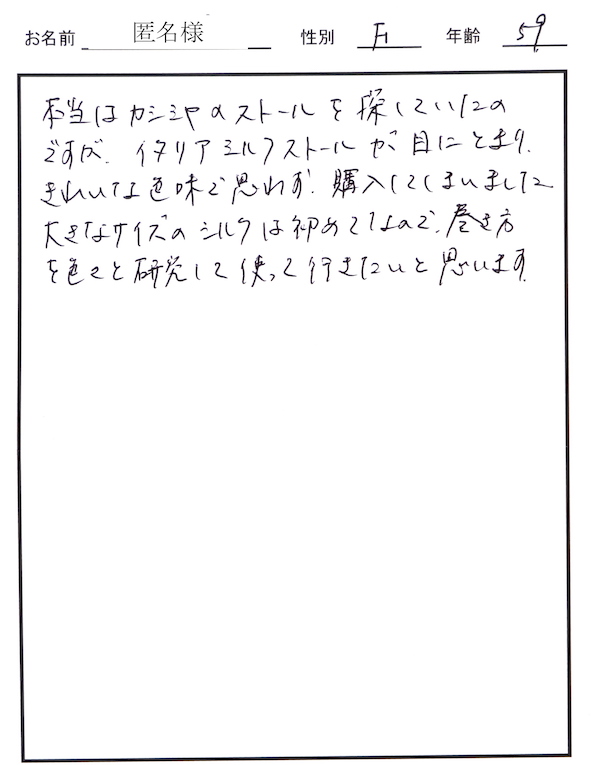 お名前 匿名様 性別 F 年齢 59
本当はカシミヤのストールを探していたの
ですが、イタリアシルクストールが目にとまり、
きれいな色味で思わず、購入してしまいました
大きなサイズのシルクは初めてなので、巻き方
を色々と研究して使って行きたいと思います。